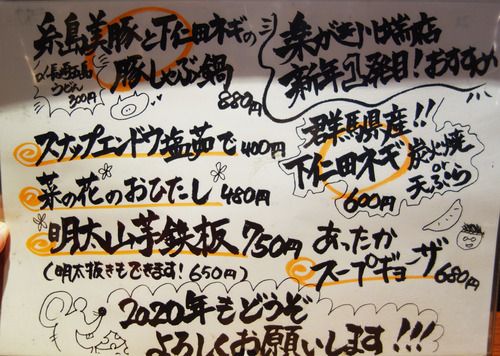 糸島美豚と下仁田ネギの
豚しゃぶ鍋
880円
長崎五島
うどん
300円
楽がき川端店
新年1発目!おすすめ
スナップエンドウ塩茹で 400円
菜の花のおひたし 480円
明太山芋鉄板 750円
(明太抜きもできます!650円)
群馬県産!!
下仁田ネギ
炭火焼
or
天ぷら
600円
あったか
スープギョーザ
680円
2020年もどうぞ
よろしくお願いします!!!